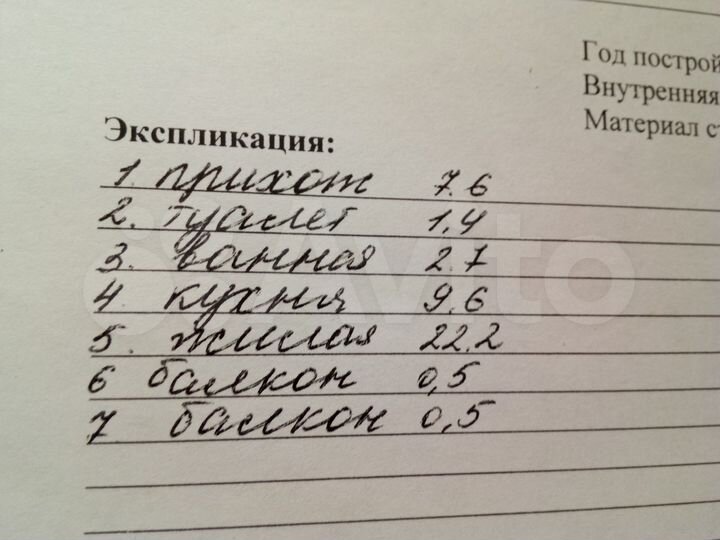 Год построй
Внутренняя
Материал ст
Экспликация:
1. прихож 7.6
2. туалет 1,4
3. ванная 2.7
4. кухня 9.6
5. жилая 22.2
6 балкон 0,5
7 балкон 0,5
Avito